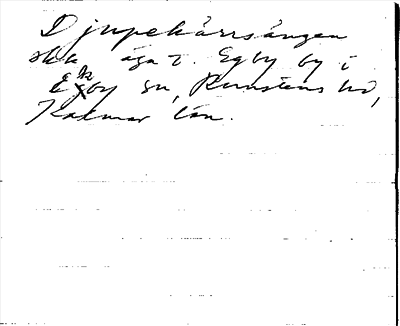 Djupekärrsängen
ska äga t. Egby by i
Egby sn, Runstens hd,
Kalmar län.